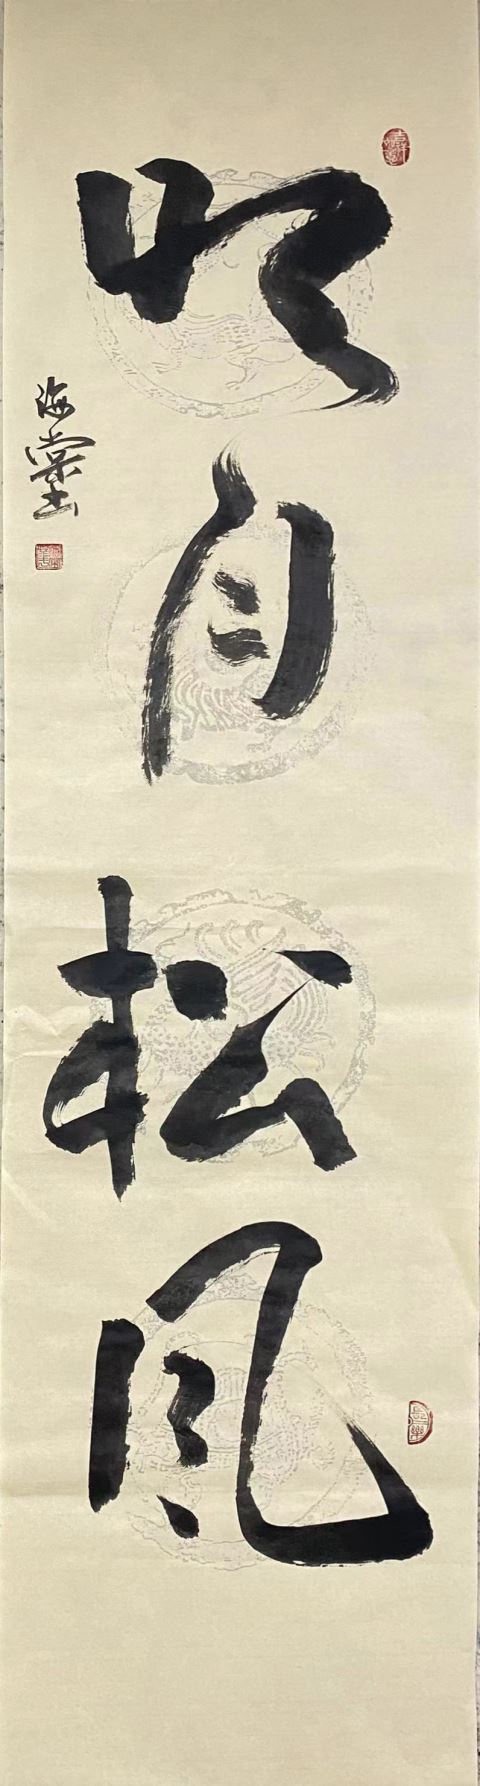 明月松风
海棠